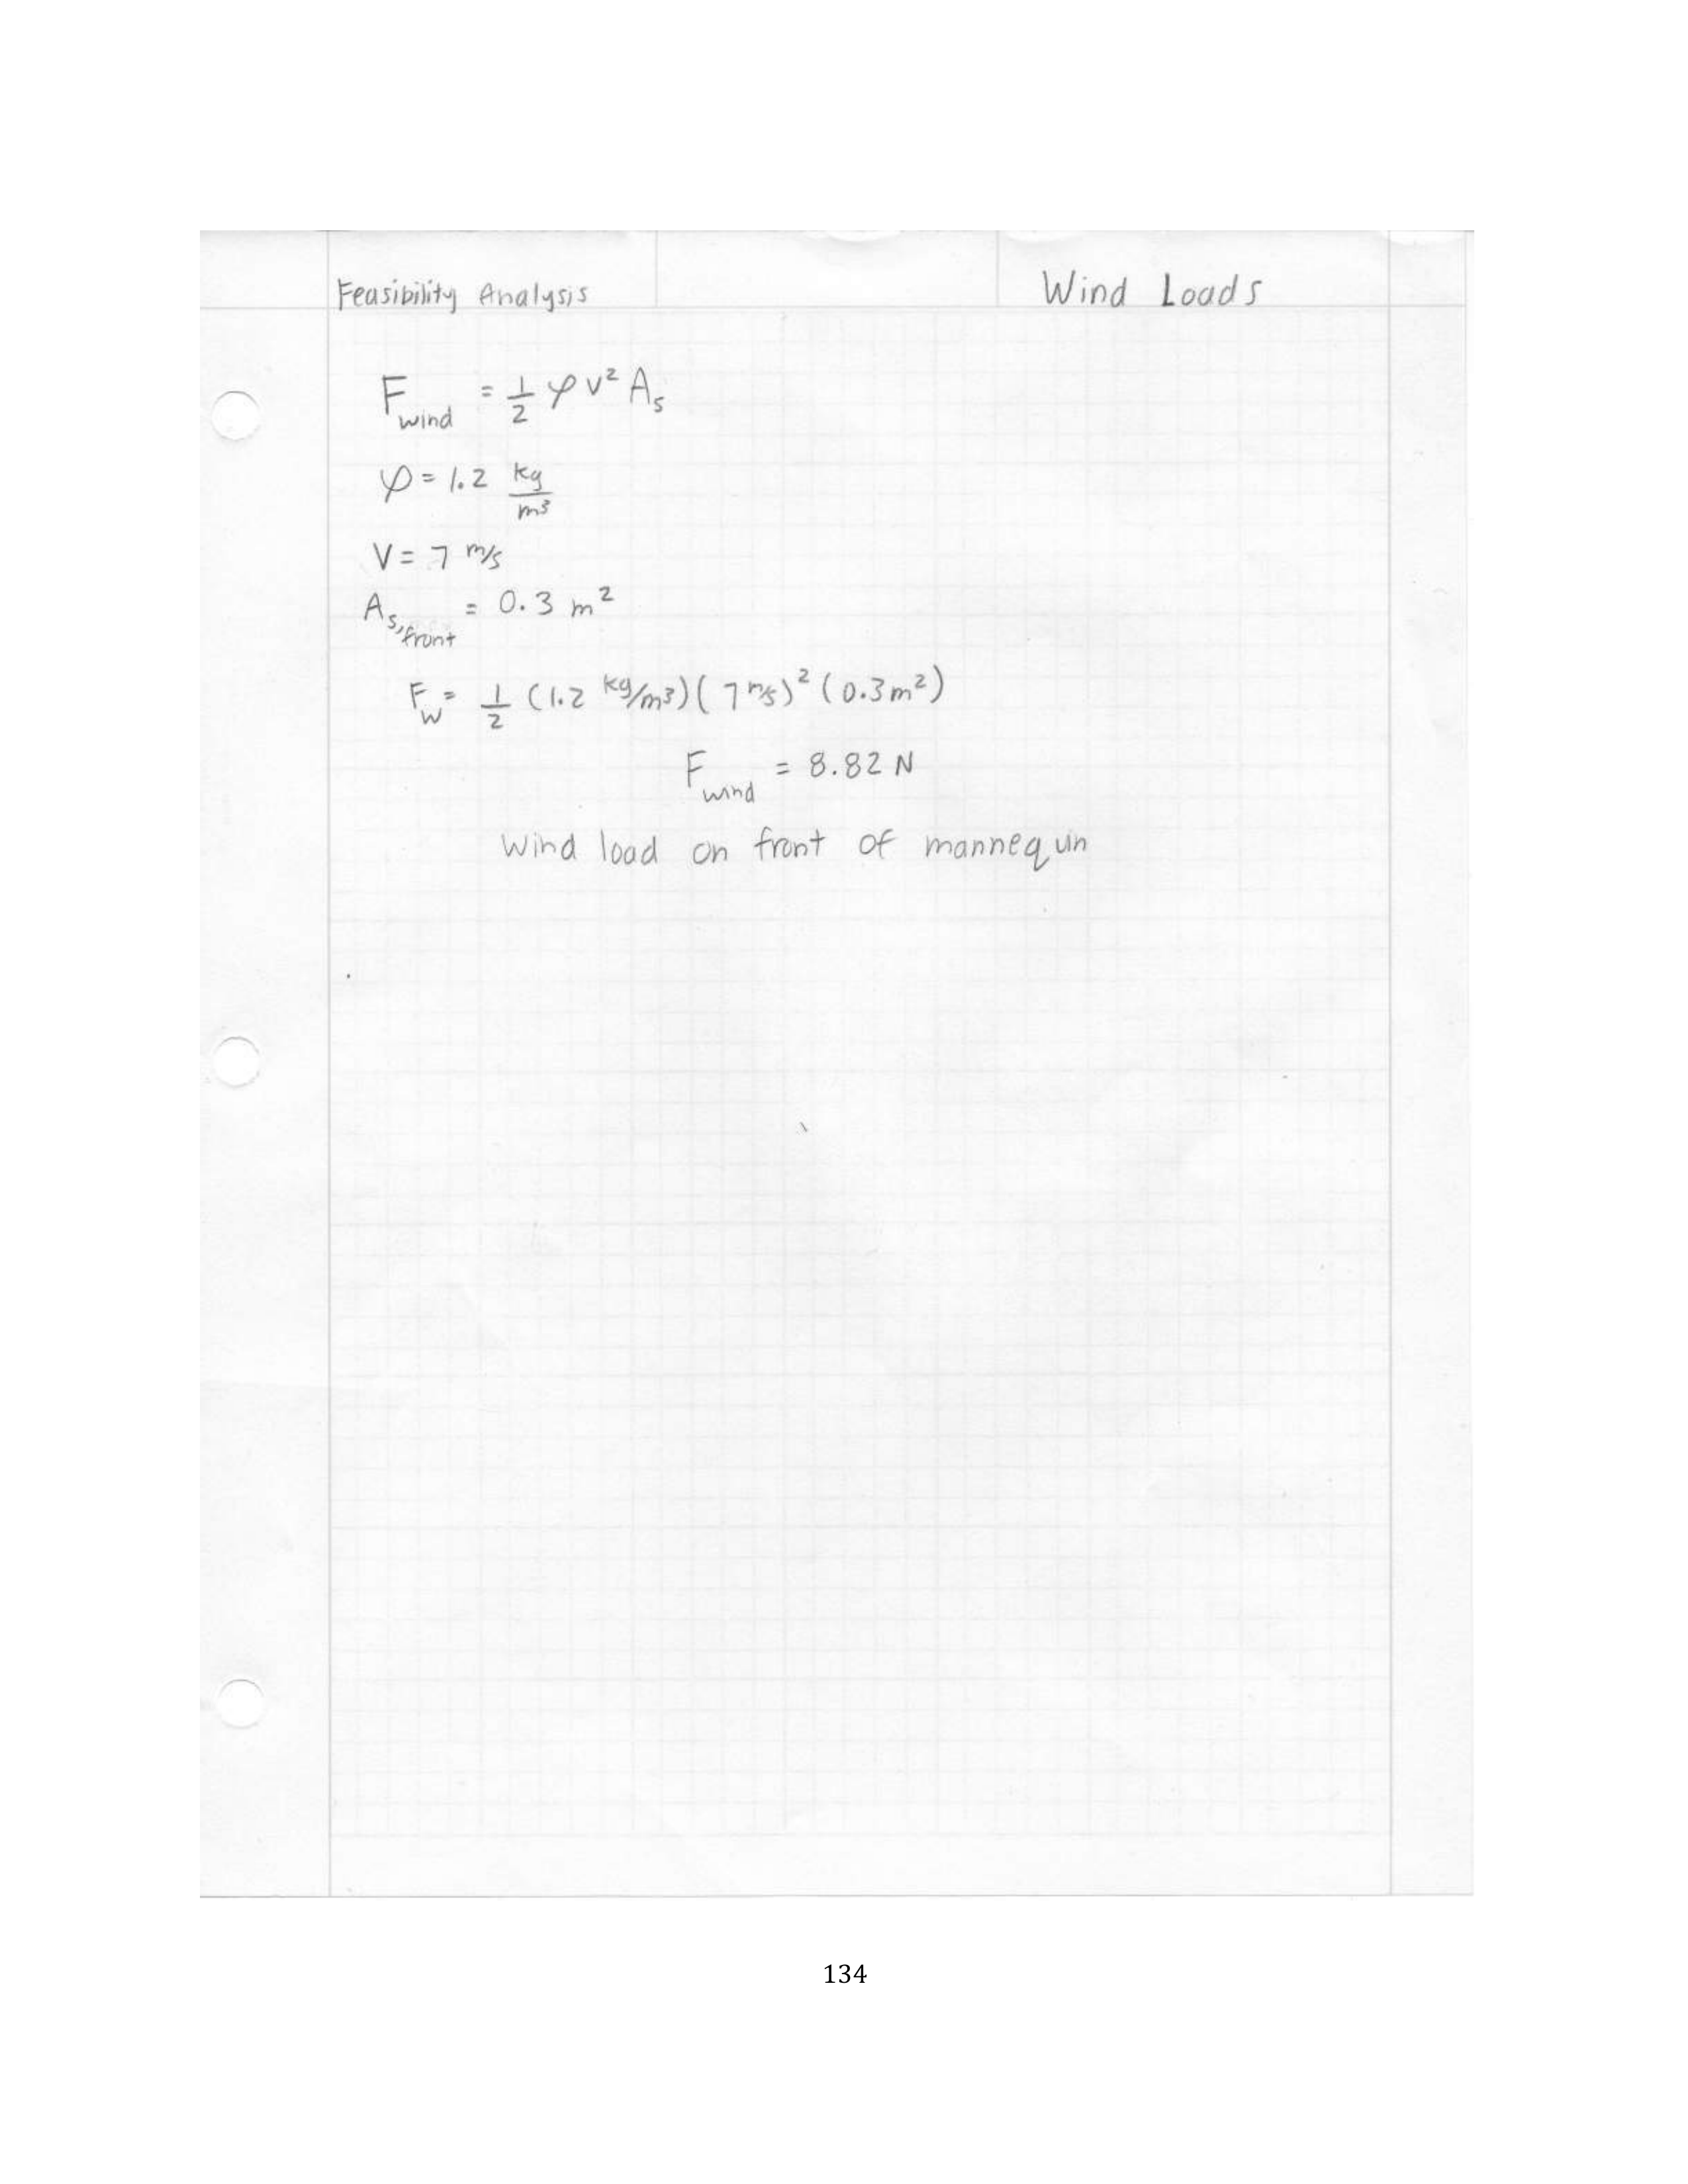 Feasibility Analysis Wind Loads
F_wind = 1/2 φ V² A_s
φ = 1.2 kg/m³
V = 7 m/s
A_s,front = 0.3 m²
F_w = 1/2 (1.2 kg/m³)(7 m/s)² (0.3 m²)
F_wind = 8.82 N
Wind load on front of mannequin
134